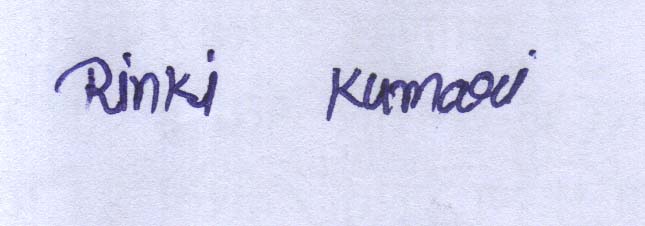 Rinki Kumari